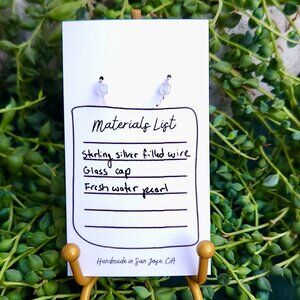 Materials List
Sterling silver filled wire
Glass cap
Fresh water pearl
Handmade in San Jose, CA